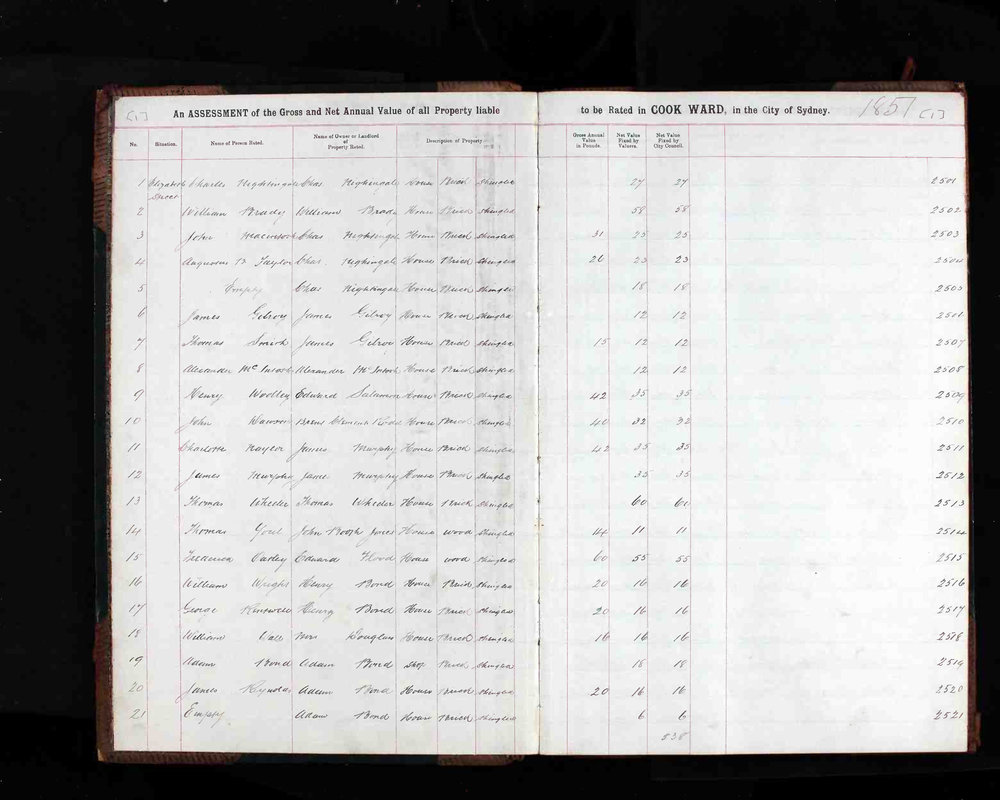 [1] An ASSESSMENT of the Gross and Net Annual Value of all Property liable to be Rated in COOK WARD, in the City of Sydney. 1851 [1]
No. Situation. Name of Person Rated. Name of Owner or Landlord of Property Rated. Description of Property Gross Annual Value in Pounds. Net Value Fixed by Valuers. Net Value Fixed by City Council.
1 Elizabeth Street Charles Nightingale Chas Nightingale House Brick Shingled 27 27 2501
2 William Brady William Brady House Brick Shingled 58 58 2502
3 John Macintosh Chas Nightingale House Brick Shingled 31 25 25 2503
4 Augustus B Taylor Chas Nightingale House Brick Shingled 26 23 23 2504
5 Empty Chas Nightingale House Brick Shingled 18 18 2505
6 James Gilroy James Gilroy House Brick Shingled 12 12 2506
7 Thomas Smith James Gilroy House Brick Shingled 15 12 12 2507
8 Alexander McIntosh Alexander McIntosh House Brick Shingled 12 12 2508
9 Henry Woolley Edward Salamon House Brick Shingled 42 35 35 2509
10 John House Brick Shingled 40 32 32 2510
11 Charlotte Naylor James Murphy House Brick Shingled 42 35 35 2511
12 James Murphy James Murphy House Brick Shingled 35 35 2512
13 Thomas Wheeler Thomas Wheeler House Brick Shingled 60 60 2513
14 Thomas John Booth Jones House wood Shingled 14 11 11 2514
15 Frederick Edward Flood House wood Shingled 60 55 55 2515
16 William Wright Henry Bond House Brick Shingled 20 16 16 2516
17 George Henry Bond House Brick Shingled 20 16 16 2517
18 William Mrs Douglass House Brick Shingled 16 16 16 2518
19 Adam Bond Adam Bond Shop Brick Shingled 18 18 2519
20 James Reynolds Adam Bond House Brick Shingled 20 16 16 2520
21 Empty Adam Bond House Brick Shingled 6 6 2521
538